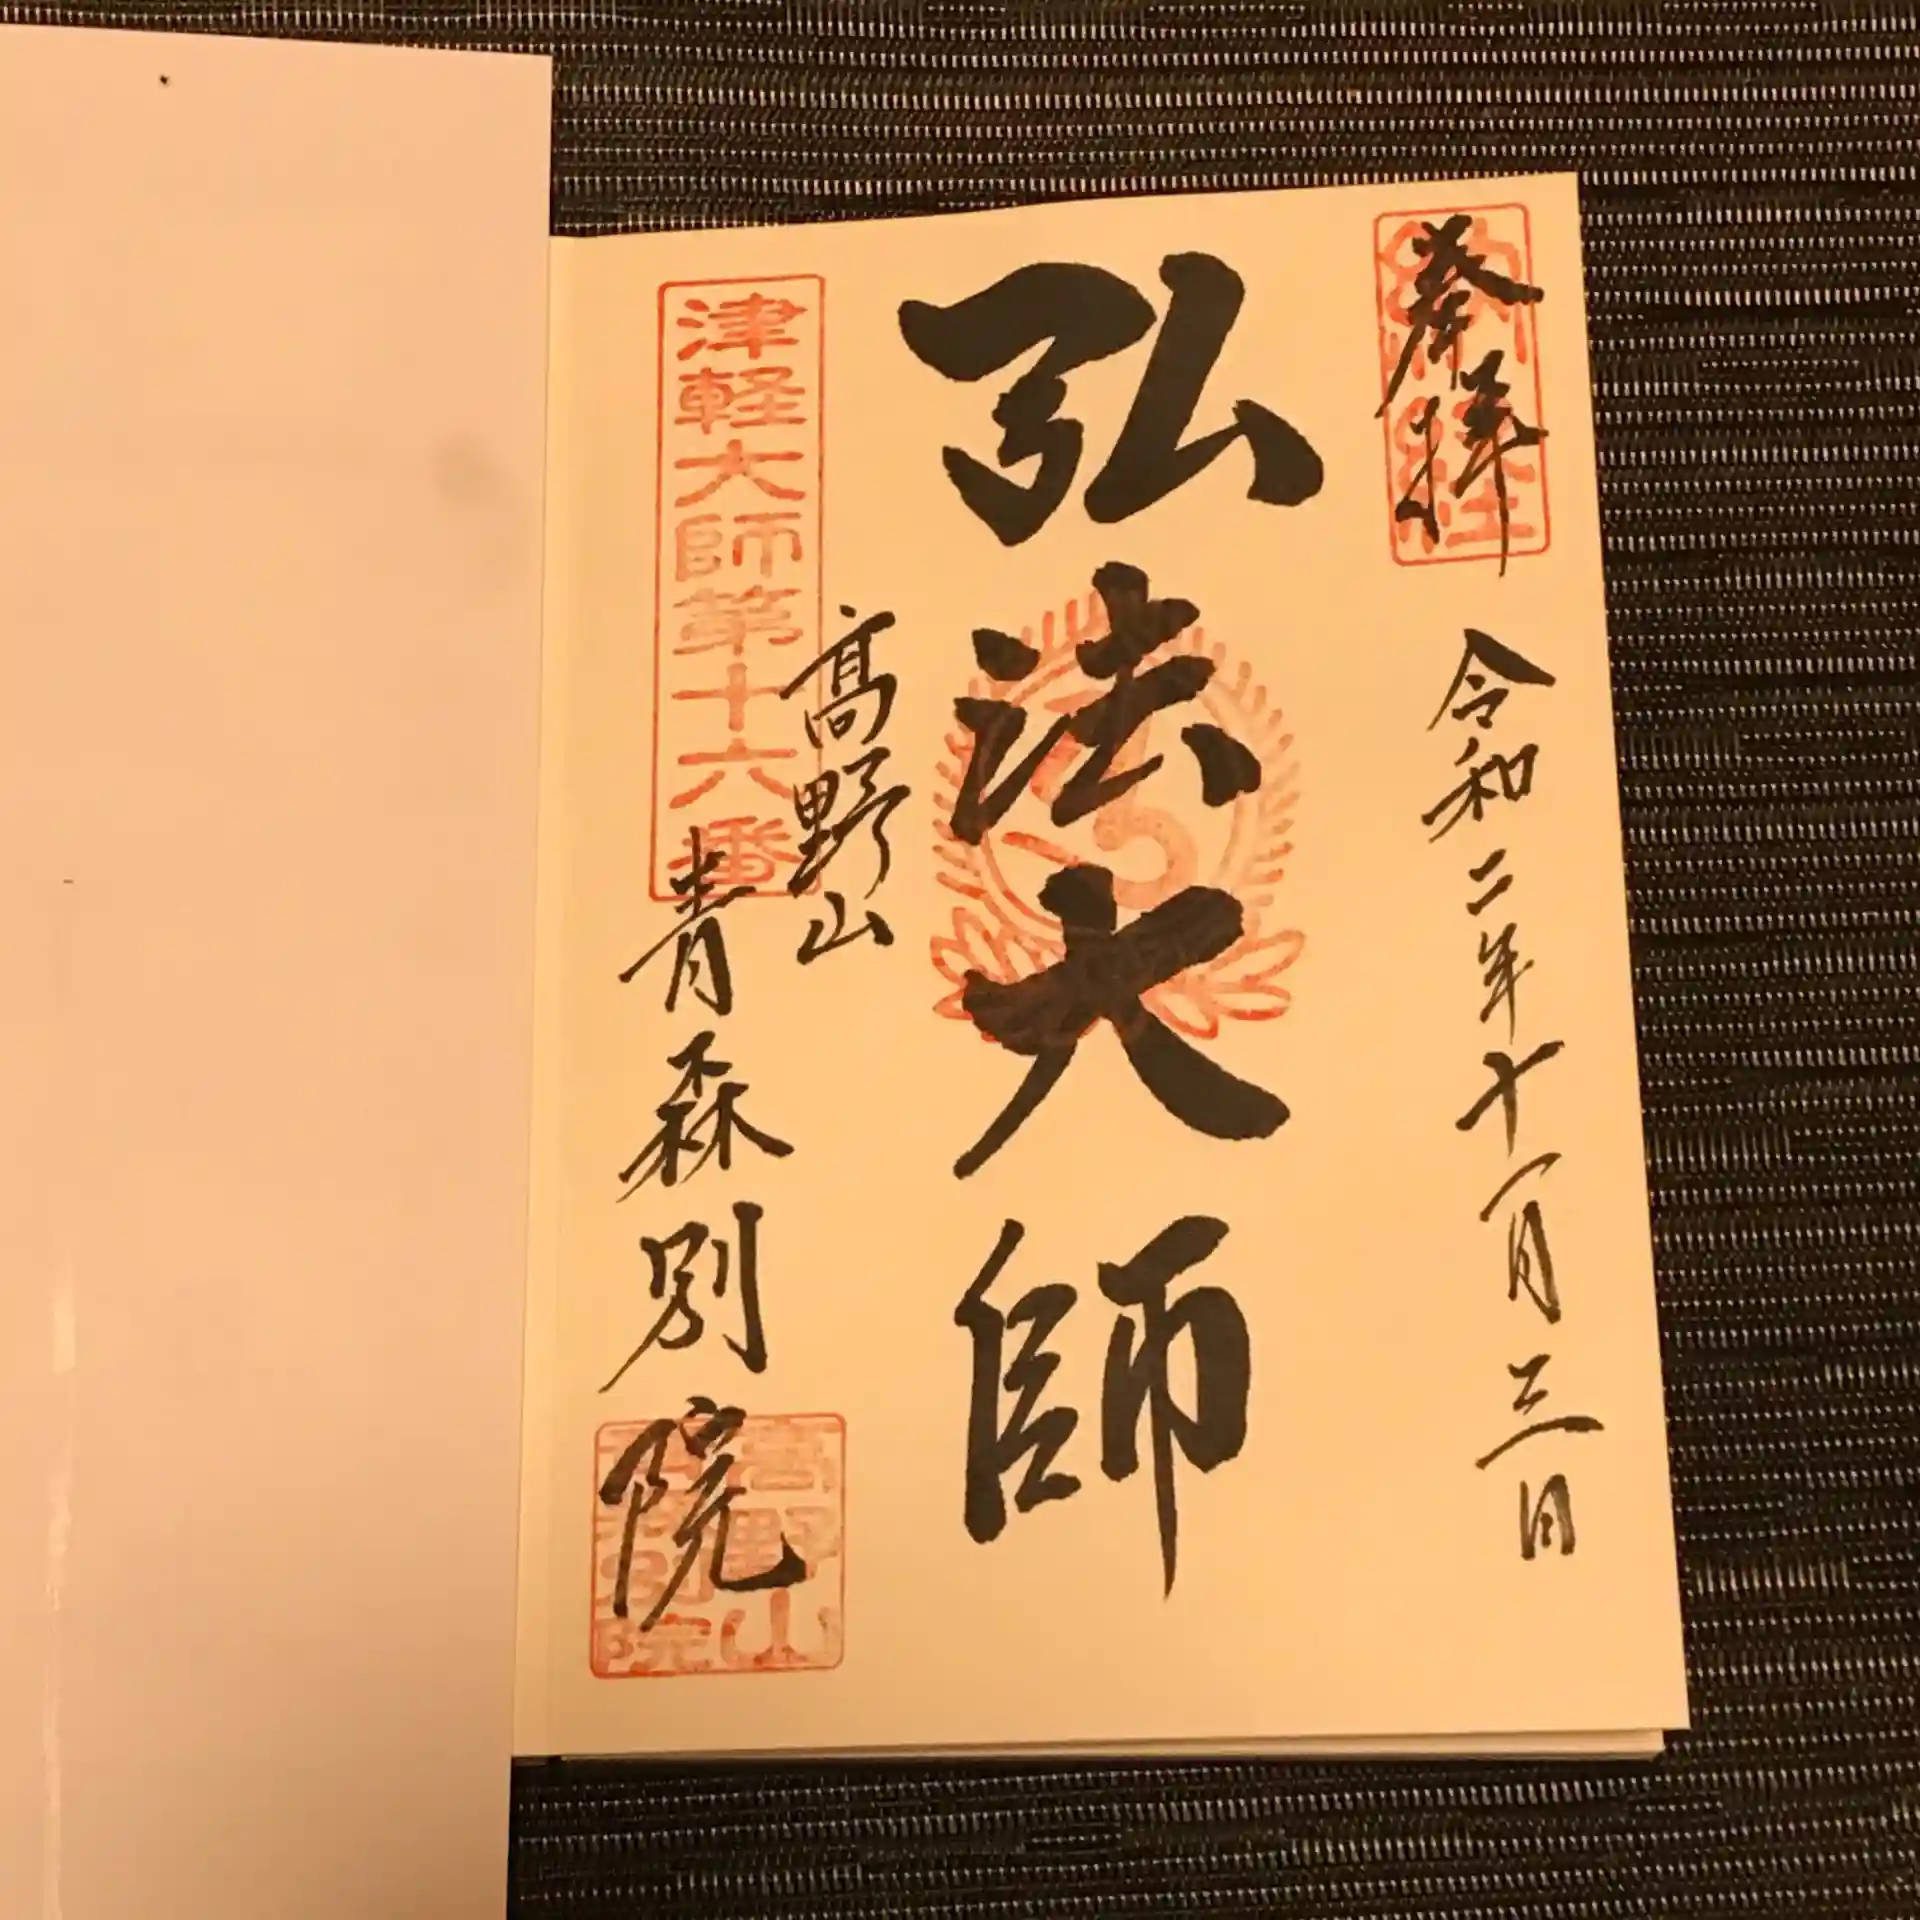 奉拝
納経
令和二年十一月三日
弘法大師
高野山
津軽大師第十六番
青森別院
高野山
青森別院